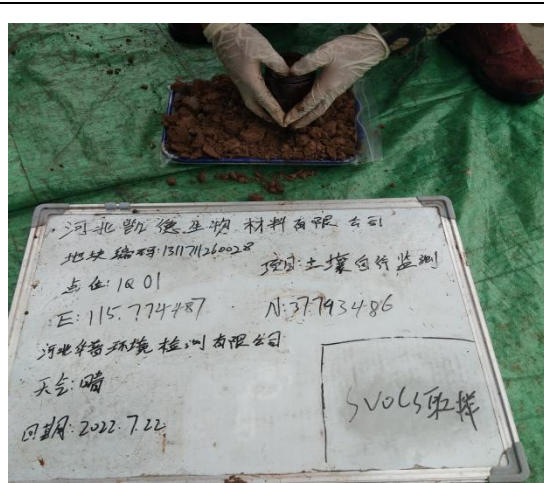 河北凯德生物材料有限公司
地块编码:1311711260028
项目:土壤自行监测
点位:1Q01
E:115.774487
N:37.793486
河北华普环境检测有限公司
天气:晴
SVOCS取样
日期:2022.7.22